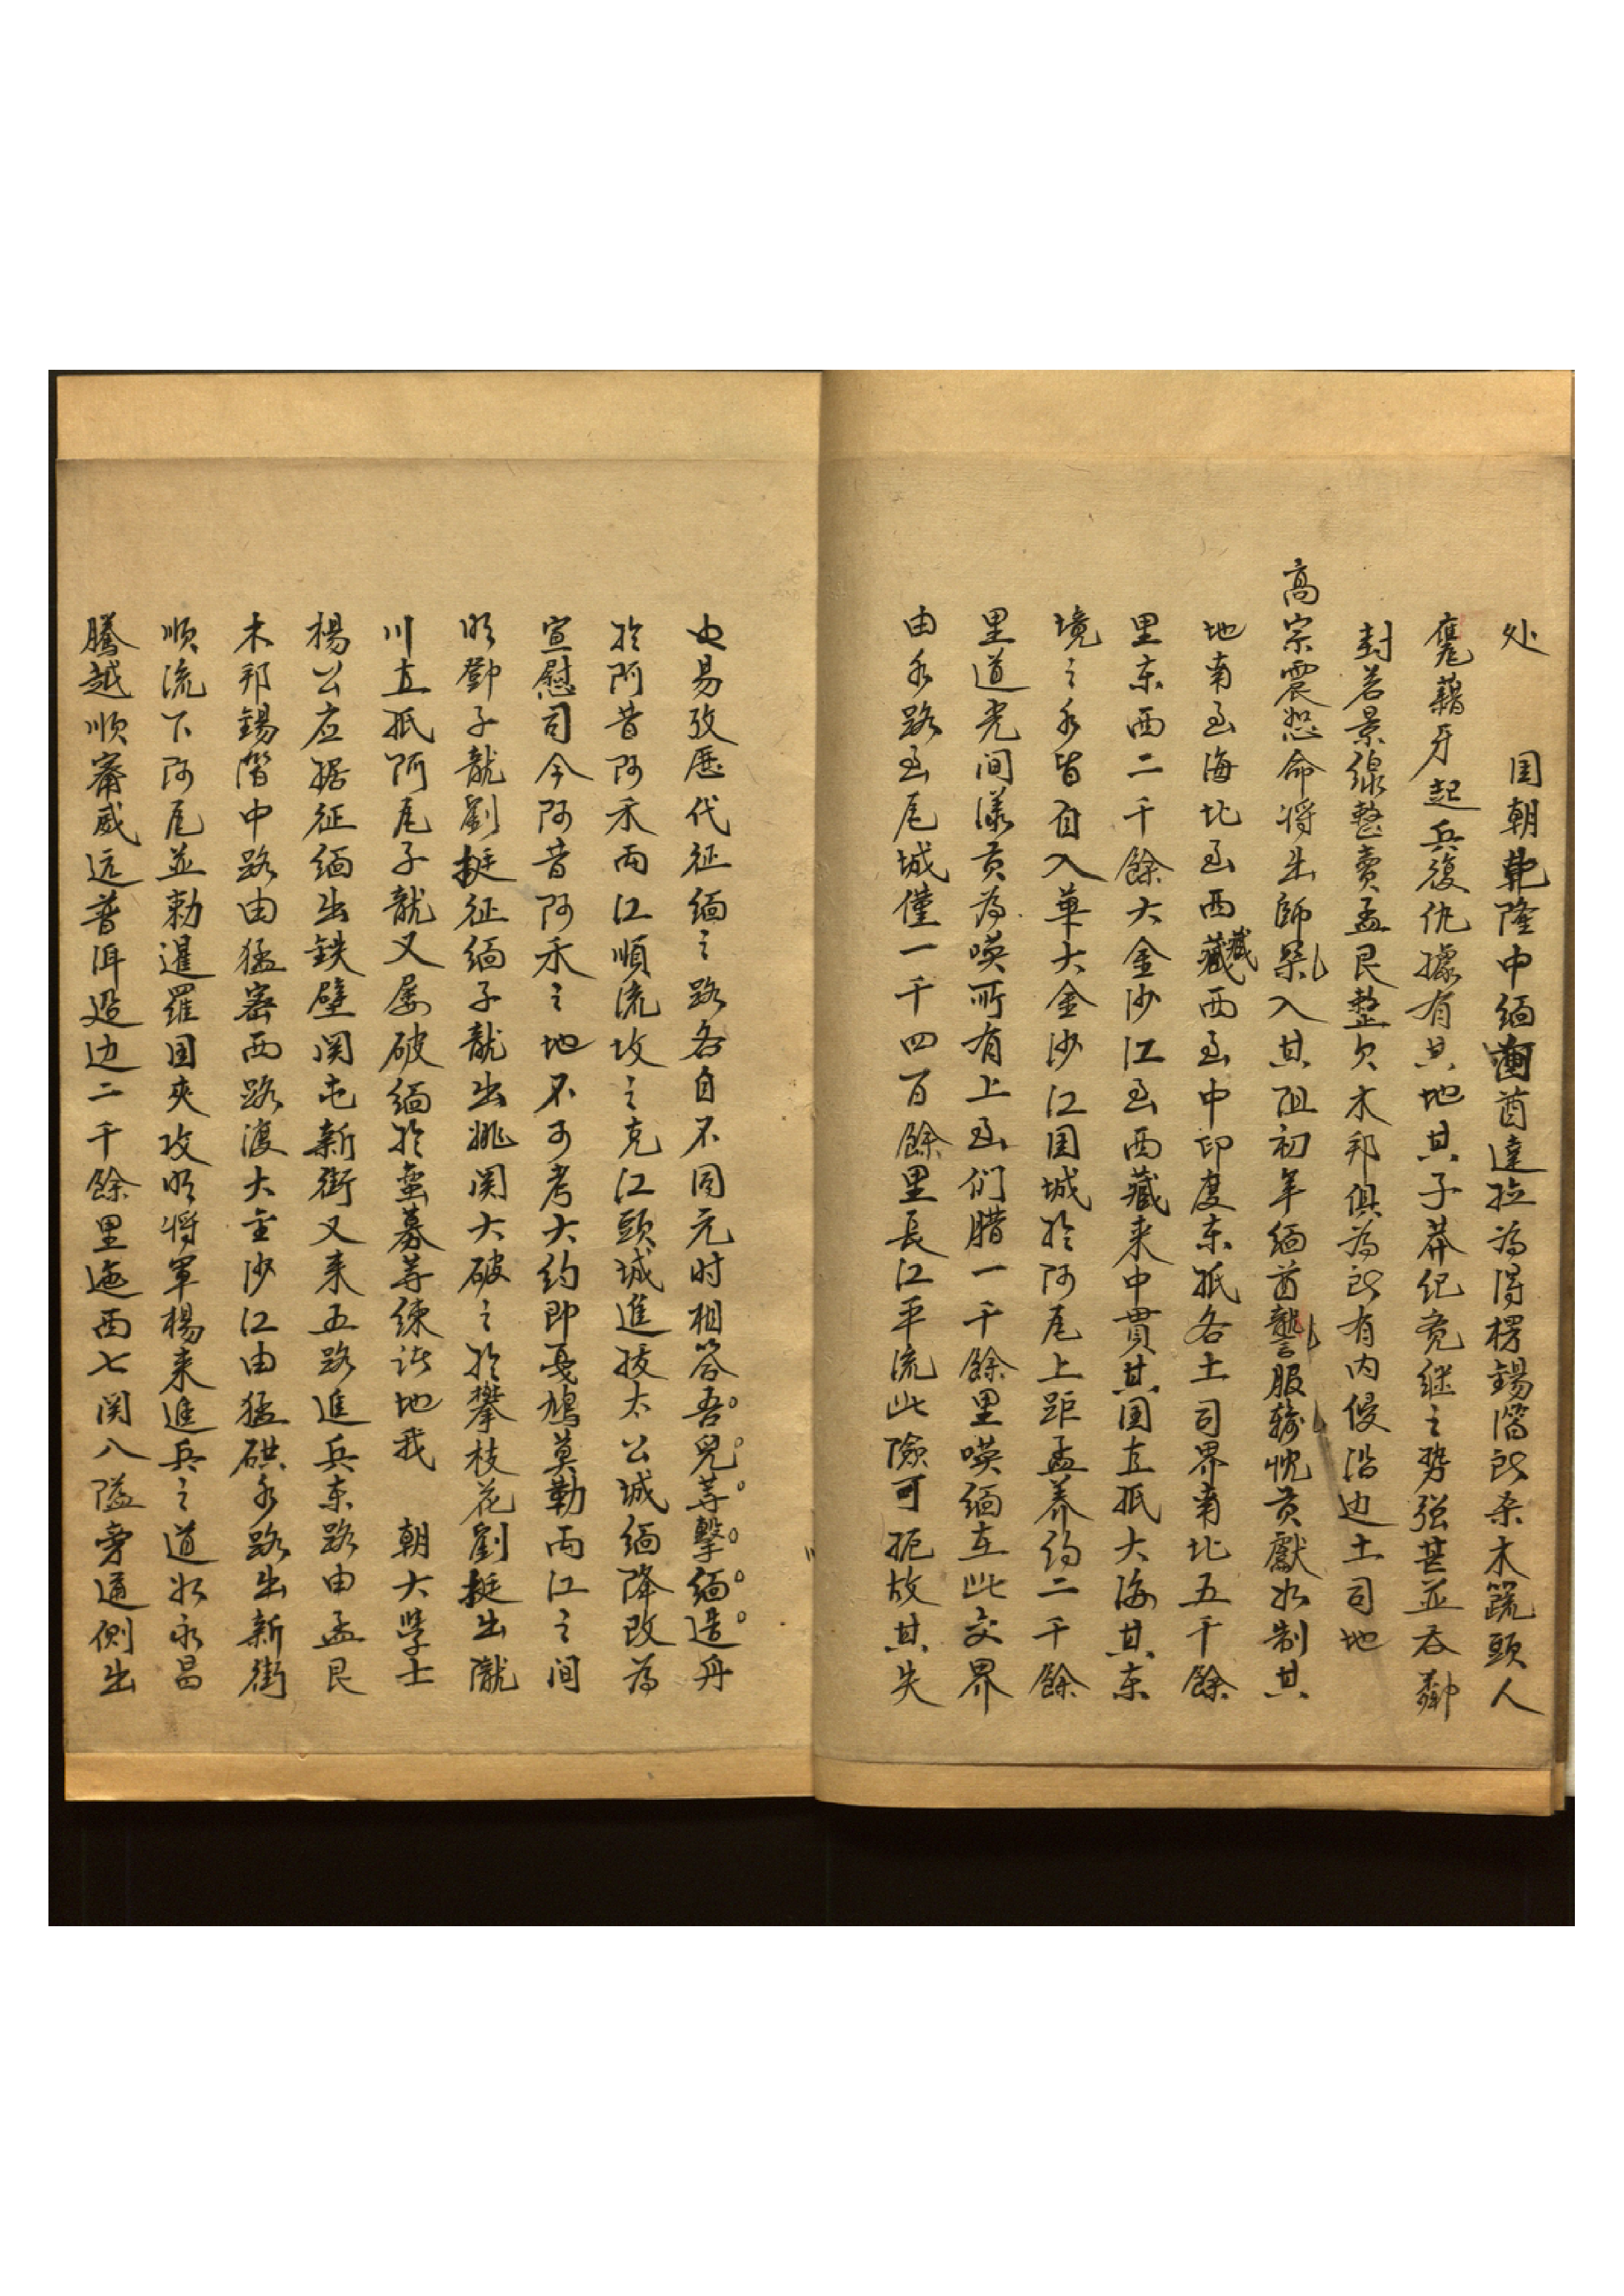 处　　国朝乹隆中缅酋達拉為得楞錫箔所杀木䟽頭人
甕藉牙起兵復仇據有其地其子莽纪竞继之势强甚並吞鄰
封若景線整賣孟艮整欠木邦俱為所有内侵沿边土司地
高宗震怒命将出師罙入其阻初年缅酋讋服输忱贡獻如制其
地南至海北至西藏西至中印度东抵各土司界南北五千餘
里东西二千餘大金沙江至西藏来中貫其国直抵大海其东
境之水皆自入華大金沙江国城於阿瓦上距孟养约二千餘
里道光间漾贡為嘆所有上至们腊一千餘里嘆缅在此交界
由水路至瓦城僅一千四百餘里長江平流此險可扼故其失
也易攷歷代征缅之路各自不同元时相答吾兒等擊缅造舟
於阿昔阿禾两江順流攻之克江頭城進拔太公城缅降改為
宣慰司今阿昔阿禾之地不可考大约即戞鳩莫勒两江之间
明鄧子龍劉挺征缅子龍出姚関大破之於攀枝花劉挺出隴
川直抵阿瓦子龍又屡破缅於蛮募等练诸地我　朝大学士
楊公应琚征缅出鉄壁関屯新街又来五路進兵东路由孟艮
木邦錫箔中路由猛密西路渡大金沙江由猛硔水路出新街
顺流下阿瓦並勅暹羅国夾攻明将軍楊来進兵之道如永昌
騰越顺寗威远普洱迤边二千餘里迤西七関八隘旁通侧出